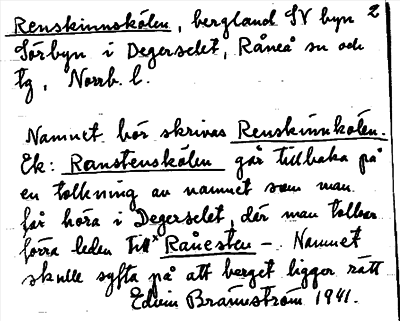 Renskinnskölen, bergland SV byn 2
Sörbyn i Degerselet, Råneå sn och
tg, Norrb. l.
Namnet bör skrivas Renskinnkölen.
Ek: Ranstenskölen går tillbaka på
en tolkning av namnet som man
får höra i Degerselet, där man tolkar
förra leden till *Rånesten -. Namnet
skulle syfta på att berget ligger rätt
Edvin Brännström 1941.